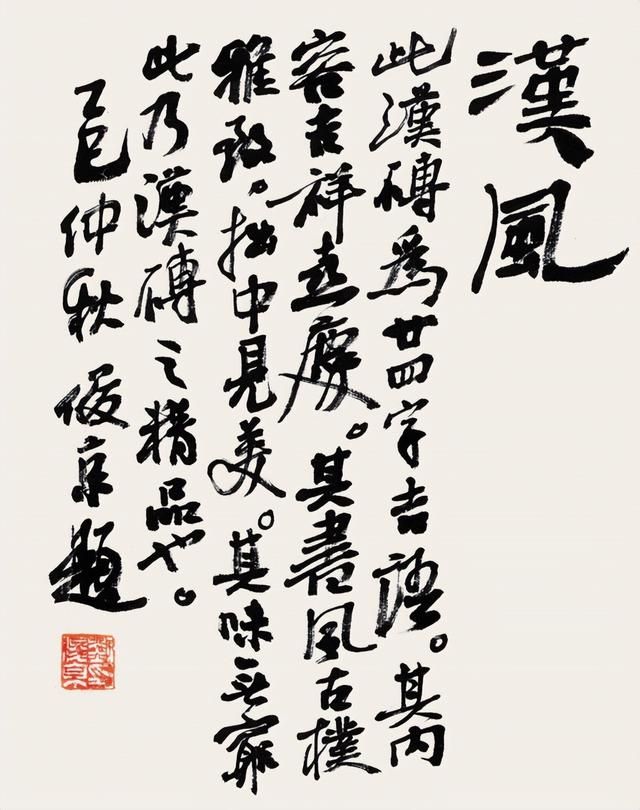 漢風
此漢磚爲廿四字吉語。其内
容吉祥喜慶。其書風古樸
雅致。拙中見美。其味无窮
此乃漢磚之精品也。
乙巳仲秋俊京題